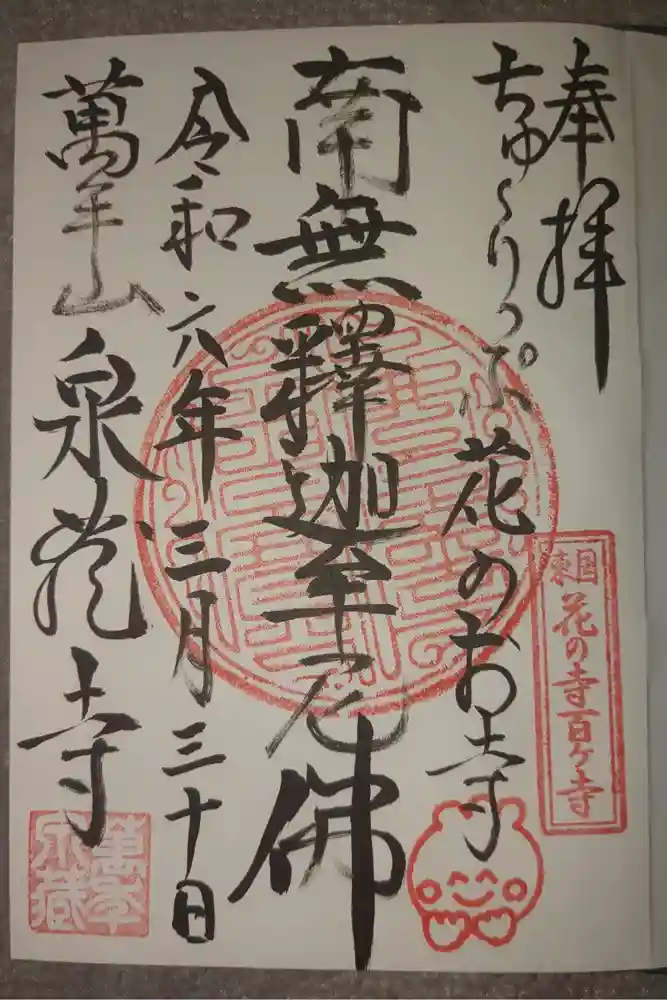 奉拝
ちゅ〜りっぷ花のお寺
南無釋迦牟尼佛
令和六年三月三十日
萬年山 泉蔵寺
東国
花の寺百ヶ寺